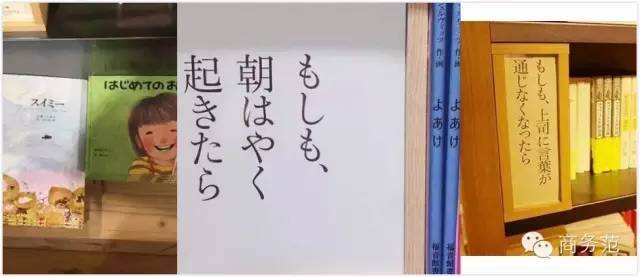 スイミー
はじめてのお
もしも、
朝はやく
起きたら
作・画
よあけ
よあけ
福音館書
もしも、上司に言葉が
通じなくなったら
商务范